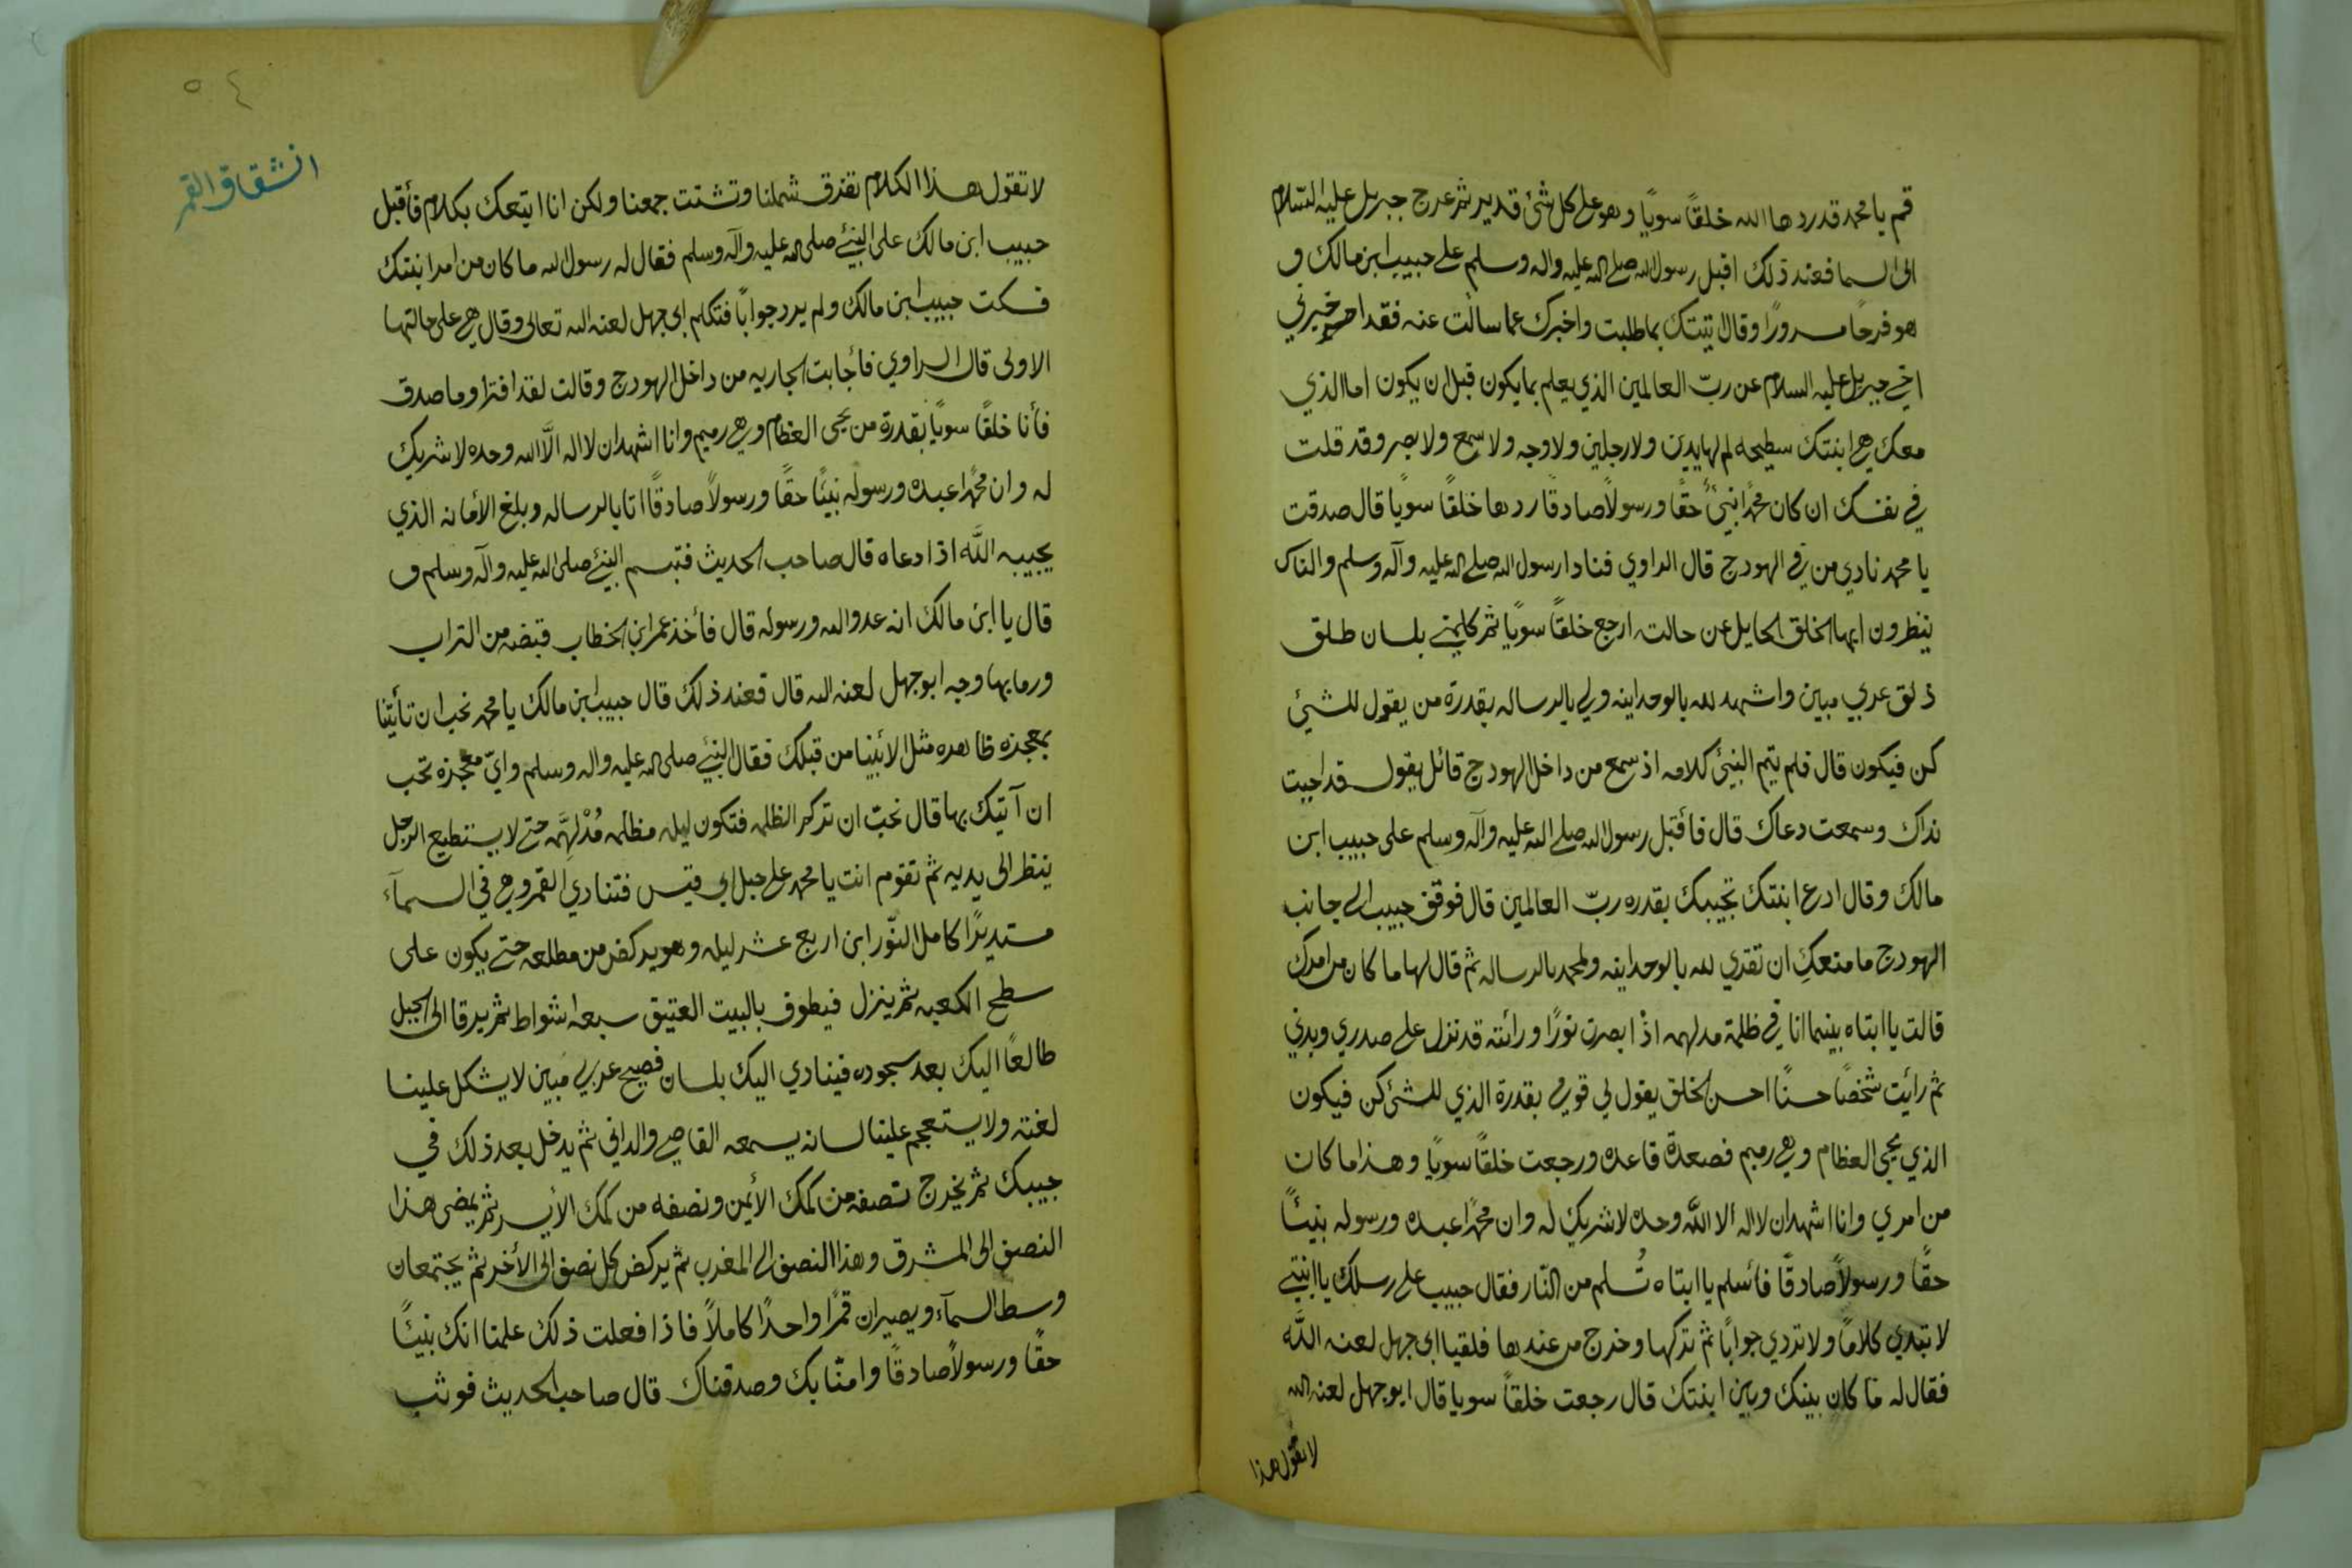 قم يا محمد قد ردها الله خلقًا سويًا وهو على كل شئ قدير ثم عرج جبريل عليه السلام
الى السما فعند ذلك اقبل رسول الله صلى الله عليه واله وسلم على حبيب ابن مالك و
هو فرحًا مسرورًا وقال تيتك بما طلبت واخبرك عما سالت عنه فقد اخبرني
اخي جبريل عليه السلام عن ربّ العالمين الذي يعلم بما يكون قبل ان يكون اما الذي
معك هي ابنتك سطيحه لم لها يدين ولا رجلين ولا وجه ولا سمع ولا بصر وقد قلت
في نفسك ان كان محمدًا نبيئًا حقًا ورسولًا صادقًا ردها خلقًا سويًا قال صدقت
يا محمد نادي من في الهودج قال الراوي فنادا رسول الله صلى الله عليه وآله وسلم والناس
ينظرون ايها الخلق الحايل عن حالته ارجع خلقًا سويًا ثم كلمني بلسان طلق
ذلق عربي مبين واشهد لله بالوحداينه ولي بالرساله بقدرة من يقول للشيئ
كن فيكون قال فلم يتيم النبيئ كلامه اذ سمع من داخل الهودج قائل يقول قد اجبت
نداك وسمعت دعاك قال فأقبل رسول الله صلى الله عليه وآله وسلم على حبيب ابن
مالك وقال ادع ابنتك تجيبك بقدره ربّ العالمين قال فوقف حبيب الى جانب
الهودج ما منعكِ ان تقري لله بالوحداينه ولمحمد بالرساله ثم قال لها ما كان من امرك
قالت يا ابتاه بينما انا في ظلمة مدلهمه اذْ ابصرت نورًا ورائته قد نزل على صدري وبدني
ثم رأيت شخصًا حسنًا احسن الخلق يقول لي قومي بقدرة الذي للشئ كن فيكون
الذي يحيى العظام وهي رميم فصعدة قاعده ورجعت خلقًا سويًا وهذا ما كان
من امري وانا اشهد ان لا اله الا الله وحده لا شريك له وان محمدًا عبده ورسوله نبيئًا
حقًا ورسولًا صادقًا فأسلم يا ابتاه تُسلم من النّار فقال حبيب على رسلك يا ابنتي
لا تبدي كلامًا ولا تردي جوابًا ثم تركها وخرج من عندها فلقيا ابى جهل لعنه الله
فقال له ما كان بينك وبين ابنتك قال رجعت خلقًا سويا قال ابو جهل لعنه الله
لا تقول هذا
٥٤
انشقاق القمر
لا تقول هذا الكلام تفرق شملنا وتشتت جمعنا ولكن انا اتيتعك بكلام فأقبل
حبيب ابن مالك على النبيئ صلى الله عليه وآله وسلم فقال له رسول الله ما كان من امر ابنتك
فسكت حبيب ابن مالك ولم يرد جوابًا فتكلم ابى جهل لعنه الله تعالى وقال هي على حالتها
الاولى قال الراوي فأجابت الجاريه من داخل الهودج وقالت لقد افترا وما صدق
فأنا خلقًا سويًا بقدرة من يحيى العظام وهي رميم وانا اشهد ان لا اله الّا الله وحده لا شريك
له وان محمدًا عبده ورسوله نبيئًا حقًا ورسولًا صادقًا اتا بالرساله وبلغ الأمانه الذي
يجيبه الله اذا دعاه قال صاحب الحديث فتبسم النبيئ صلى الله عليه وآله وسلم و
قال يا ابن مالك انه عدو الله ورسوله قال فأخذ عمر ابن الخطاب قبضه من التراب
ورما بها وجه ابو جهل لعنه الله قال فعند ذلك قال حبيب ابن مالك يا محمد نحب ان تأيتنا
بمعجزه ظاهره مثل الانبينا من قبلك فقال النبيئ صلى الله عليه واله وسلم وايّ معجزه تحب
ان آتيك بها قال نحبّ ان تدكر الظلمه فتكون ليله مظلمه مُدْلهمّه حتى لا يستطيع الرجل
ينظر الى يديه ثم تقوم انت يا محمد على جبل ابى قبيس فتنادي القمر وهي في السمآء
مستديرًا كامل النّور ابن اربع عشر ليله وهو يركض من مطلعه حتى يكون على
سطح الكعبه ثم ينزل فيطوف بالبيت العتيق سبعه اشواط ثم يرقا الى الجبل
طالعًا اليك بعد سجوده فينادي اليك بلسان فصيح عربي مبين لا يشكل علينا
لغته ولا يستعجم علينا لسانه يسمعه القاصي والداني ثم يدخل بعد ذلك في
جيبك ثم يخرج نصفه من كمك الأيمن ونصفه من كمك الأيسر ثم يمضى هذا
النصف الى المشرق وهذا النصف الى المغرب ثم يركض كل نصف الى الأخر ثم يجتمعان
وسط السمآء ويصيران قمرًا واحدًا كاملًا فاذا فعلت ذلك علمنا انك نبيئًا
حقًا ورسولًا صادقًا وامنّا بك وصدقناك قال صاحب الحديث فوثب